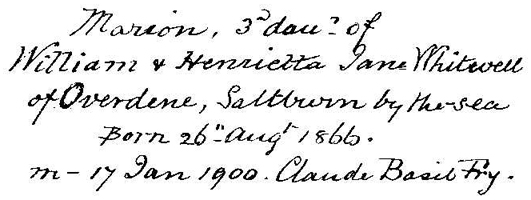 Marion, 3d dau? of
William & Henrietta Jane Whitwell
of Overdene, Saltburn by the sea
Born 26" Augt 1866.
m - 17 Jan 1900. Claude Basil Fry.